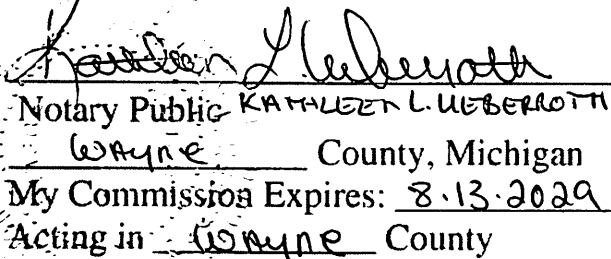 Kathleen L. Ueberroth
Notary Public KATHLEEN L. UEBERROTH
Wayne County, Michigan
My Commission Expires: 8.13.2029
Acting in Wayne County